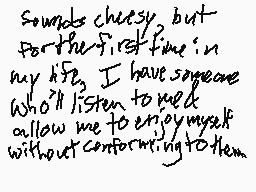 Sounds cheesy, but
for the first time in
my life, I have someone
who'll listen to me &
allow me to enjoy myself
without conforming to them